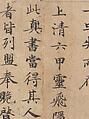 上清六甲靈飛隱
此真書當得其人
者皆列盟奉貺啓